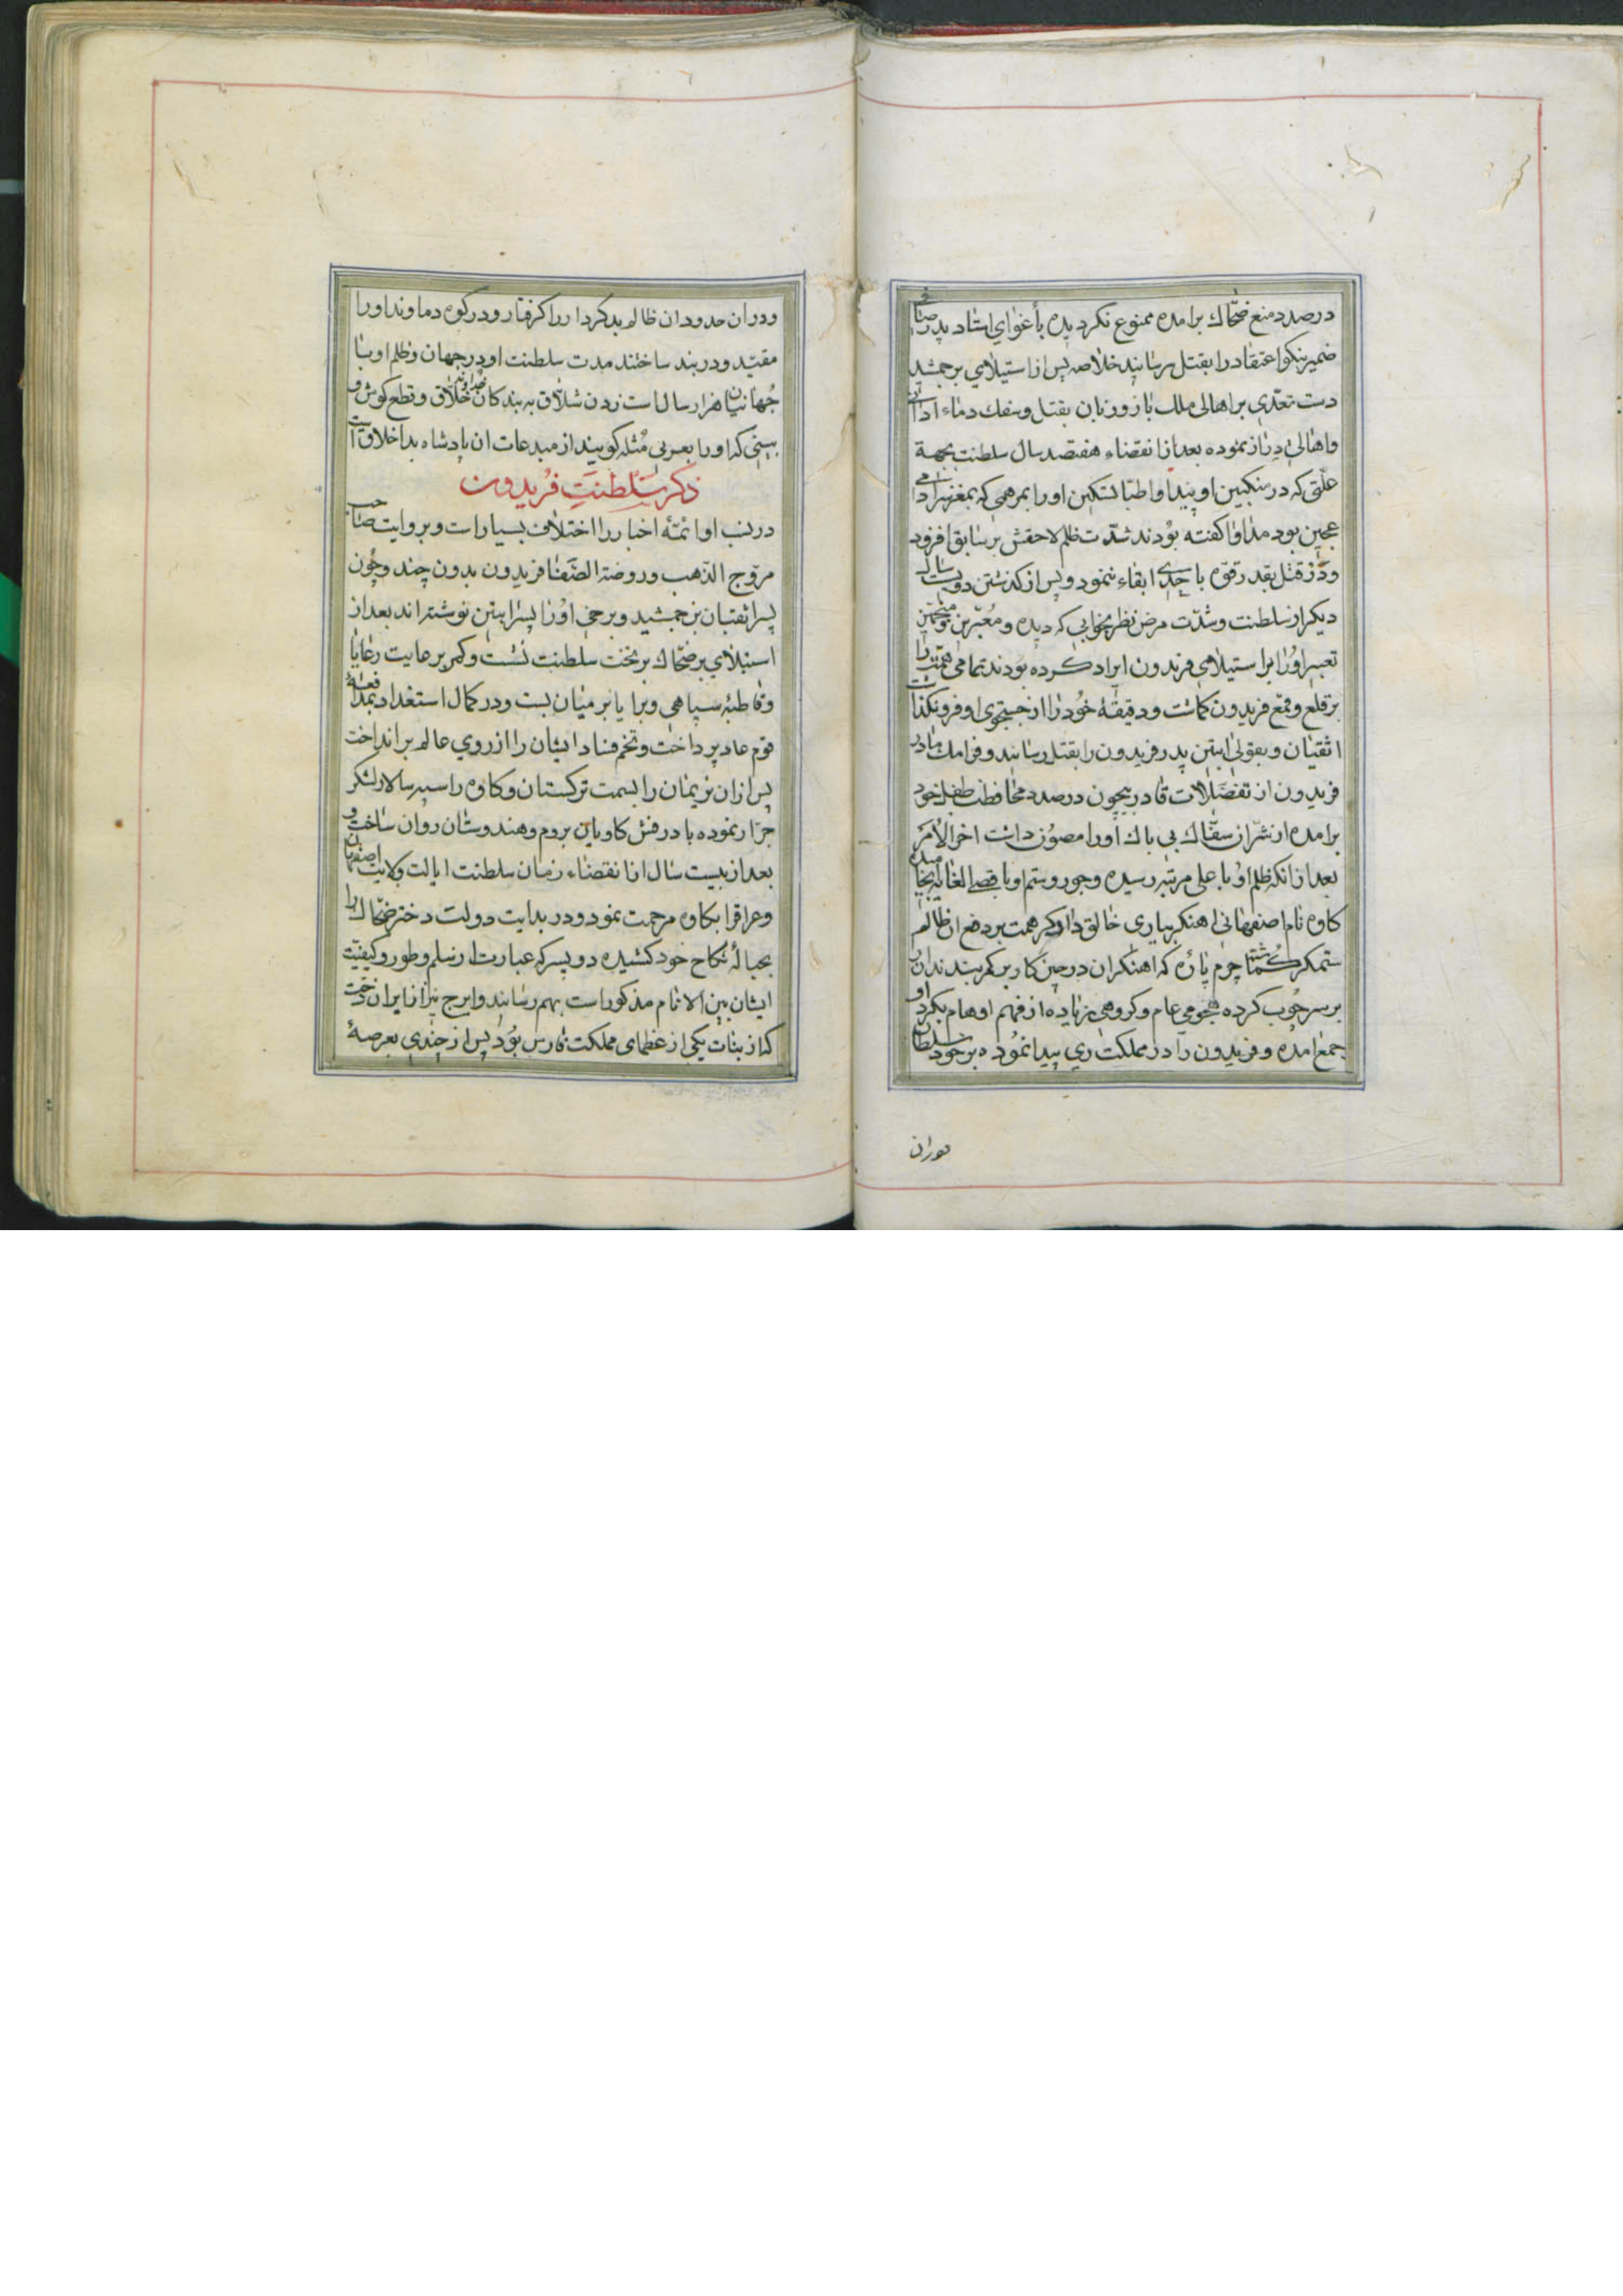 درصدد منع ضحّاك برامده ممنوع نكرديده بأغواي استاد پدر صافی
ضمير نيكو اعتقاد را بقتل رسانيد خلاصه پس از استيلاي بر جمشيد
دست تعدّي بر اهالی ملك باز و زبان بقتل و سفك دماء ادانی
و اهالی دراز نموده بعد از انقضاء هفتصد سال سلطنت بجهة
علّتی كه در منكبين او پيدا و اطبّا تسكين اورا بمرهمی كه بمغز سر ادمی
عجين بود مداوا كفته بودند شدّت ظلم لاحقش بر سابق افزود
و در قتل بقدر قوّه با احدی ابقاء ننمود و پس از كذشتن دويست سال
ديكر از سلطنت و شدّت مرض نظر بخوابی كه ديده و معبّرين و منجّمين
تعبير اورا بر استيلای فريدون ايراد كرده بودند تمامی همّت را
بر قلع و قمع فريدون كماشت و دقيقهٔ خود را از جستجوی او فرو نكذاشت
اثقيان و بقولی ابتين پدر فريدون را بقتل رسانيد و فرامك مادر
فريدون از تفضّلات قادر بيچون درصدد محافظت طفل خود
برامده از شرّ ان سفّاك بی باك اورا مصون داشت اخر الأمر
بعد از انكه ظلم او با علی مرتبه رسيده و جور و ستم او باقصی الغايه انجاميده
كاوه نام اصفهانی اهنكر بياری خالق داور كمر همت بر دفع ان ظالم
ستمكر كماشته چرم پارهٔ كه اهنكران در حين كار بر كمر بندند انرا
بر سر چوب كرده هجومی عام و كروهی زياده از فهم اوهام بكرد او
جمع امده و فريدون را در مملكت ري پيدا نموده بر خود سلطان
دوران
ودر ان حدود ان ظالم بدكردار را كرفتار و در كوه دماوند اورا
مقيّد و در بند ساختند مدت سلطنت او در جهان و ظلم او با
جهانيان هزار سال است زدن شلاّق به بندكان خداوند خلاّق و قطع كوش و
بينی كه اورا بعربی مُثله كويند از مبدعات ان پادشاه بد اخلاق است
ذكر سَلطنتِ فُريدون
در نسب او ائمّهٔ اخبار را اختلاف بسيار است و بروايت صاحب
مروّج الذّهب و روضة الصّفا فريدون بدون چند و چون
پسر اثقيان بن جمشيد و برخی اورا پسر ابتين نوشته اند بعد از
استيلاي بر ضحّاك بر تخت سلطنت نشست و كمر بر عايت رعايا
و قاطبهٔ سپاهی و برايا بر ميان بست و در كمال استعداد بمدافعهٔ
قوم عاد پرداخت و تخم فساد ايشان را از روي عالم برانداخت
پس از ان نريمان را بسمت تركستان و كاوه را سپه سالار لشكر
جرّار نموده با درفش كاويانی بروم و هندوستان روان ساخت و
بعد از بيست سال از انقضاء زمان سلطنت ايالت ولايت اصفهان
و عراق را بكاوه مرحمت نمود و در بدايت دولت دختر ضحّاك را
بحبالهٔ نكاح خود كشيده دو پسر كه عبارت از سلم و طور و كيفيّت
ايشان بين الانام مذكور است بهم رسانيد و ايرج نيز از ايران دخت
كه از بنات يكی از عظمای مملكت فارس بود پس از چندي بعرصهٔ